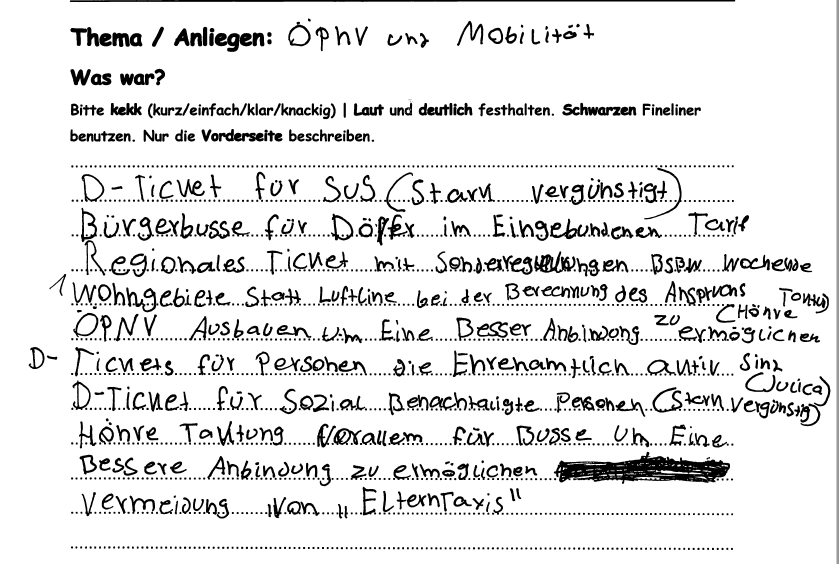 Thema / Anliegen: ÖPNV und Mobilität
Was war?
Bitte kekk (kurz/einfach/klar/knackig) | Laut und deutlich festhalten. Schwarzen Fineliner
benutzen. Nur die Vorderseite beschreiben.
D-Ticket für SuS (Stark vergünstigt)
Bürgerbusse für Döfer im Eingebundenen Tarif
Regionales Ticket mit Sonderregelungen Bspw Wochende
Wohngebiete Statt Luftline bei der Berechnung des Anspruchs
ÖPNV Ausbauen um Eine Besser Anbindung zu ermöglichen (Höhre
D-Tickets für Personen die Ehrenamtlich aktiv sind (Julica)
D-Ticket für Sozial Benachtaligte Personen (Stark vergünstig)
Höhre Taktung Vorallem für Busse Um Eine
Bessere Anbindung zu ermöglichen
Vermeidung von „ElternTaxis"